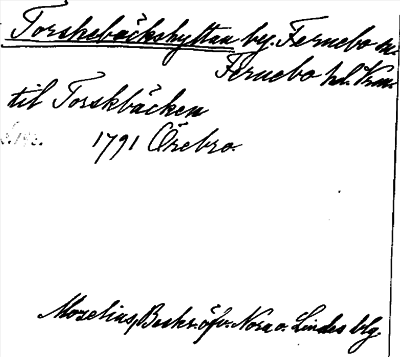 Torskebäckshyttan by. Fernebo sn.
Fernebo hd. Vrm.
til Torskbäcken
1791 Örebro.
Mozelius, Beskr. öfv. Nora o. Lindes blg